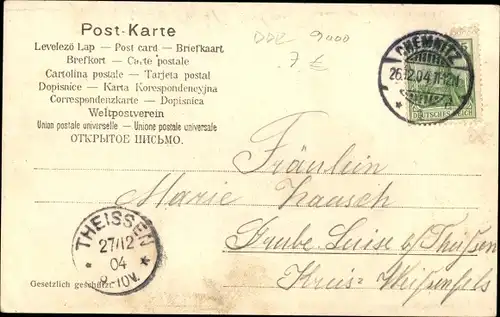 Post-Karte
Levelező Lap — Post card — Briefkaart
Brefkort — Carte postale
Cartolina postale — Tarjeta postal
Dopisnice — Karta Korespondencyjna
Correspondenzkarte — Dopisnica
Weltpostverein
Union postale universelle — Unione postale universale
ОТКРЫТОЕ ПИСЬМО.
DDL 9000
7 £
CHEMNITZ
26.12.04.11-12
DEUTSCHES REICH
Fräulein
Marie Zausch
Grube Luise b/Theißen
Kreis= Weißenfels
THEISSEN
27/12
04
8-10V.
Gesetzlich geschützt.